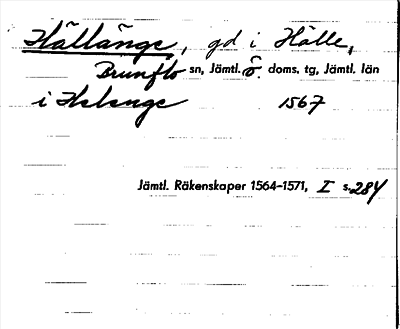 Hällänge, gd i Hälle,
Brunflo sn, Jämtl. ö. doms. tg, Jämtl. län
i Helenge 1567
Jämtl. Räkenskaper 1564-1571, I s. 284